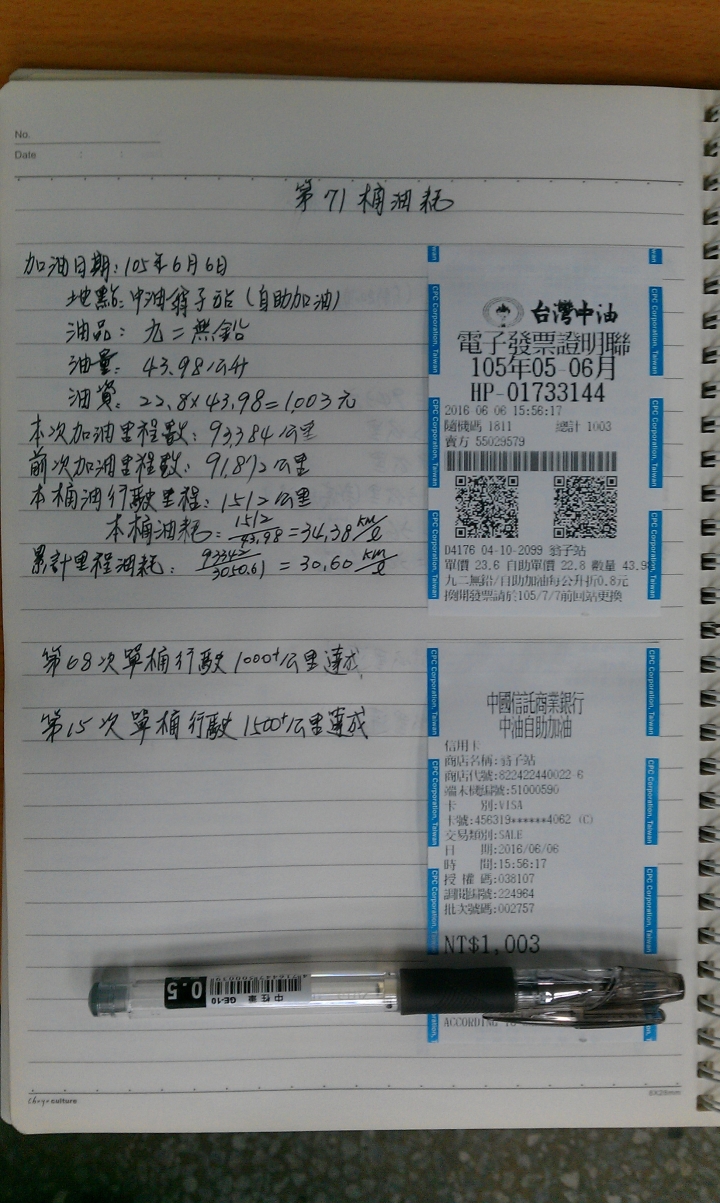 No.
Date : :
第71桶油耗
加油日期：105年6月6日
地點：中油翁子站（自助加油）
油品：九二無鉛
油量：43.98公升
油資：22.8×43.98=1,003元
本次加油里程數：93,384公里
前次加油里程數：91,872公里
本桶油行駛里程：1512公里
本桶油耗：1512/43.98=34.38 km/ℓ
累計里程油耗：93342/3050.61=30.60 km/ℓ
第68次單桶行駛1000⁺公里達成
第15次單桶行駛1500⁺公里達成
台灣中油
電子發票證明聯
105年05-06月
HP-01733144
2016-06-06 15:56:17
隨機碼 1811 總計 1003
賣方 55029579
D4176 04-10-2099 翁子站
單價 23.6 自助單價 22.8 數量 43.98
九二無鉛/自助加油每公升折0.8元
換開發票請於105/7/7前回站更換
CPC Corporation, Taiwan
中國信託商業銀行
中油自助加油
信用卡
商店名稱:翁子站
商店代號:822422440022-6
端末機編號:51000590
卡 別:VISA
卡號:456319******4062 (C)
交易類別:SALE
日 期:2016/06/06
時 間:15:56:17
授 權 碼:038107
調閱編號:224964
批次號碼:002757
NT$1,003
ACCORDING TO
0.5
GE-10
中性筆
culture